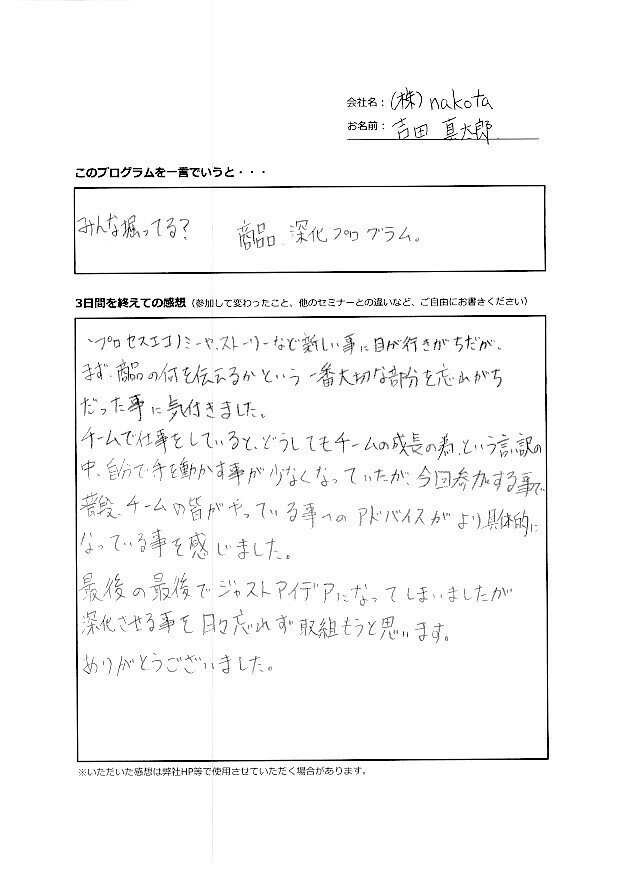 会社名：(株)nakota
お名前：吉田 真太郎
このプログラムを一言でいうと・・・
みんな掘ってる？ 商品、深化プログラム。
3日間を終えての感想（参加して変わったこと、他のセミナーとの違いなど、ご自由にお書きください）
、プロセスエコノミーや、ストーリーなど新しい事に目が行きがちだが、
まず、商品の何を伝えるかという一番大切な部分を忘れがち
だった事に気付きました。
チームで仕事をしていると、どうしてもチームの成長の為、という言い訳の
中、自分で手を動かす事が少なくなっていたが、今回参加する事で
普段、チームの皆がやっている事へのアドバイスがより具体的に
なっている事を感じました。
最後の最後でジャストアイデアになってしまいましたが
深化させる事を日々忘れず取組もうと思います。
ありがとうございました。
※いただいた感想は弊社HP等で使用させていただく場合があります。